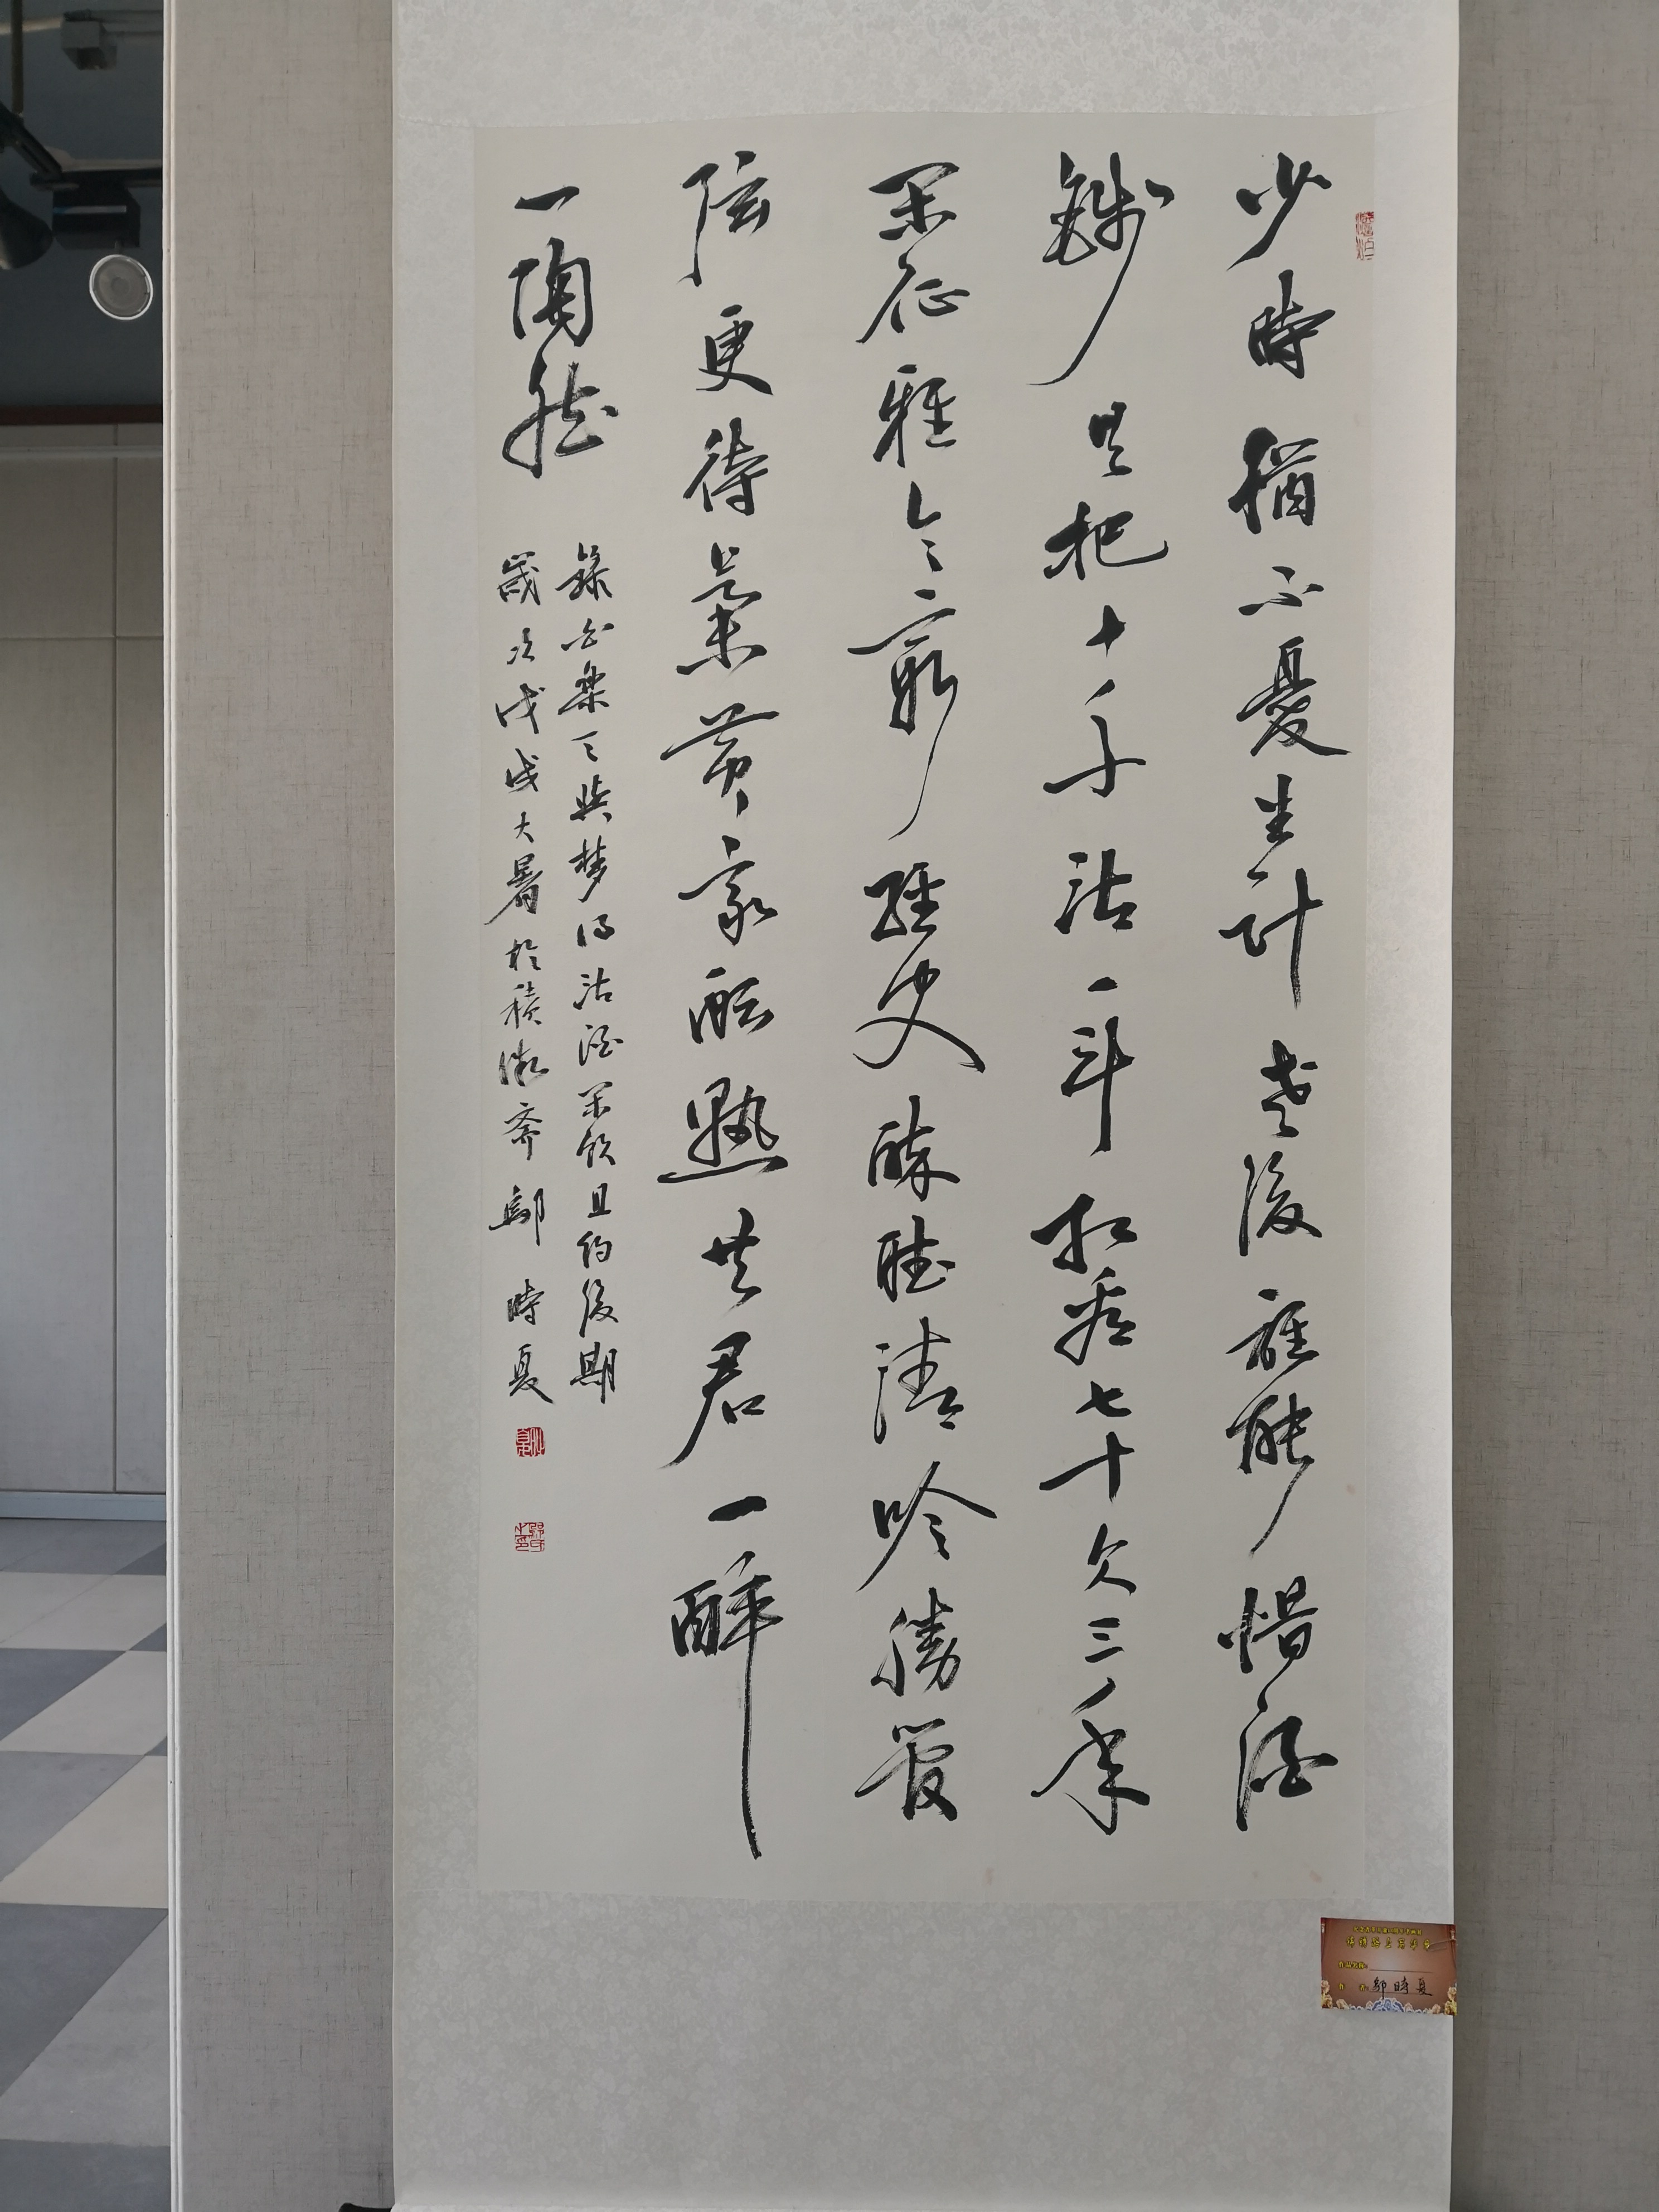 少時猶不憂生計老後誰能惜酒
錢共把十千沽一斗相看七十欠三年
閑征雅令窮經史醉聽清吟勝管
弦更待菊黄家醖熟共君一醉
一陶然
錄白樂天與梦得沽酒閑飲且約後期
歲次戊戌大暑於積微齋鄔時夏
作品名称:
作 者:鄔時夏